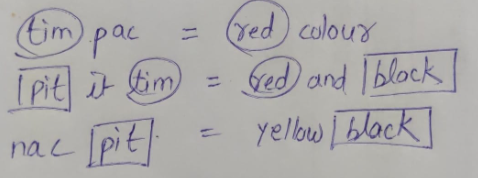 tim pac = red colour
pit it tim = red and black
nac pit. = yellow black